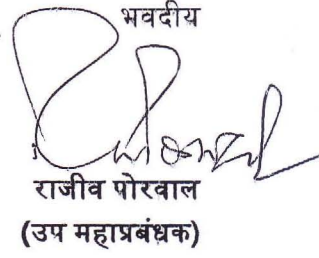 भवदीय
राजीव पोरवाल
(उप महाप्रबंधक)